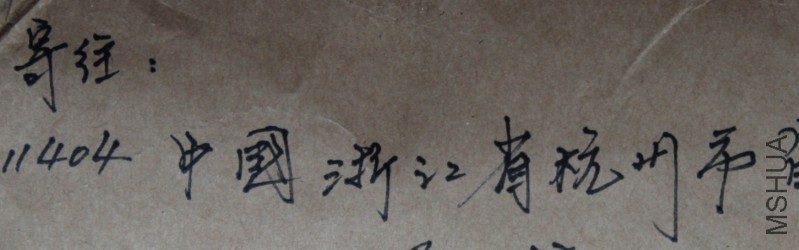 寄往：
11404 中国浙江省杭州市
MSHUA